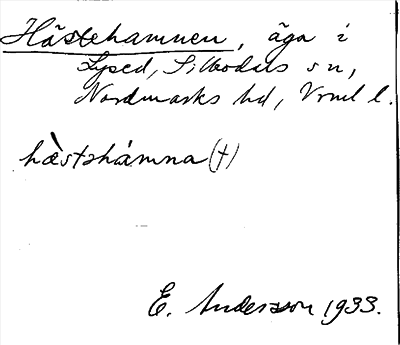 Hästehamnen, äga i
Lysed, Sillbodals sn,
Nordmarks hd, Vrml l.
hæ̀stəhámna (t)
E. Andersson 1933.